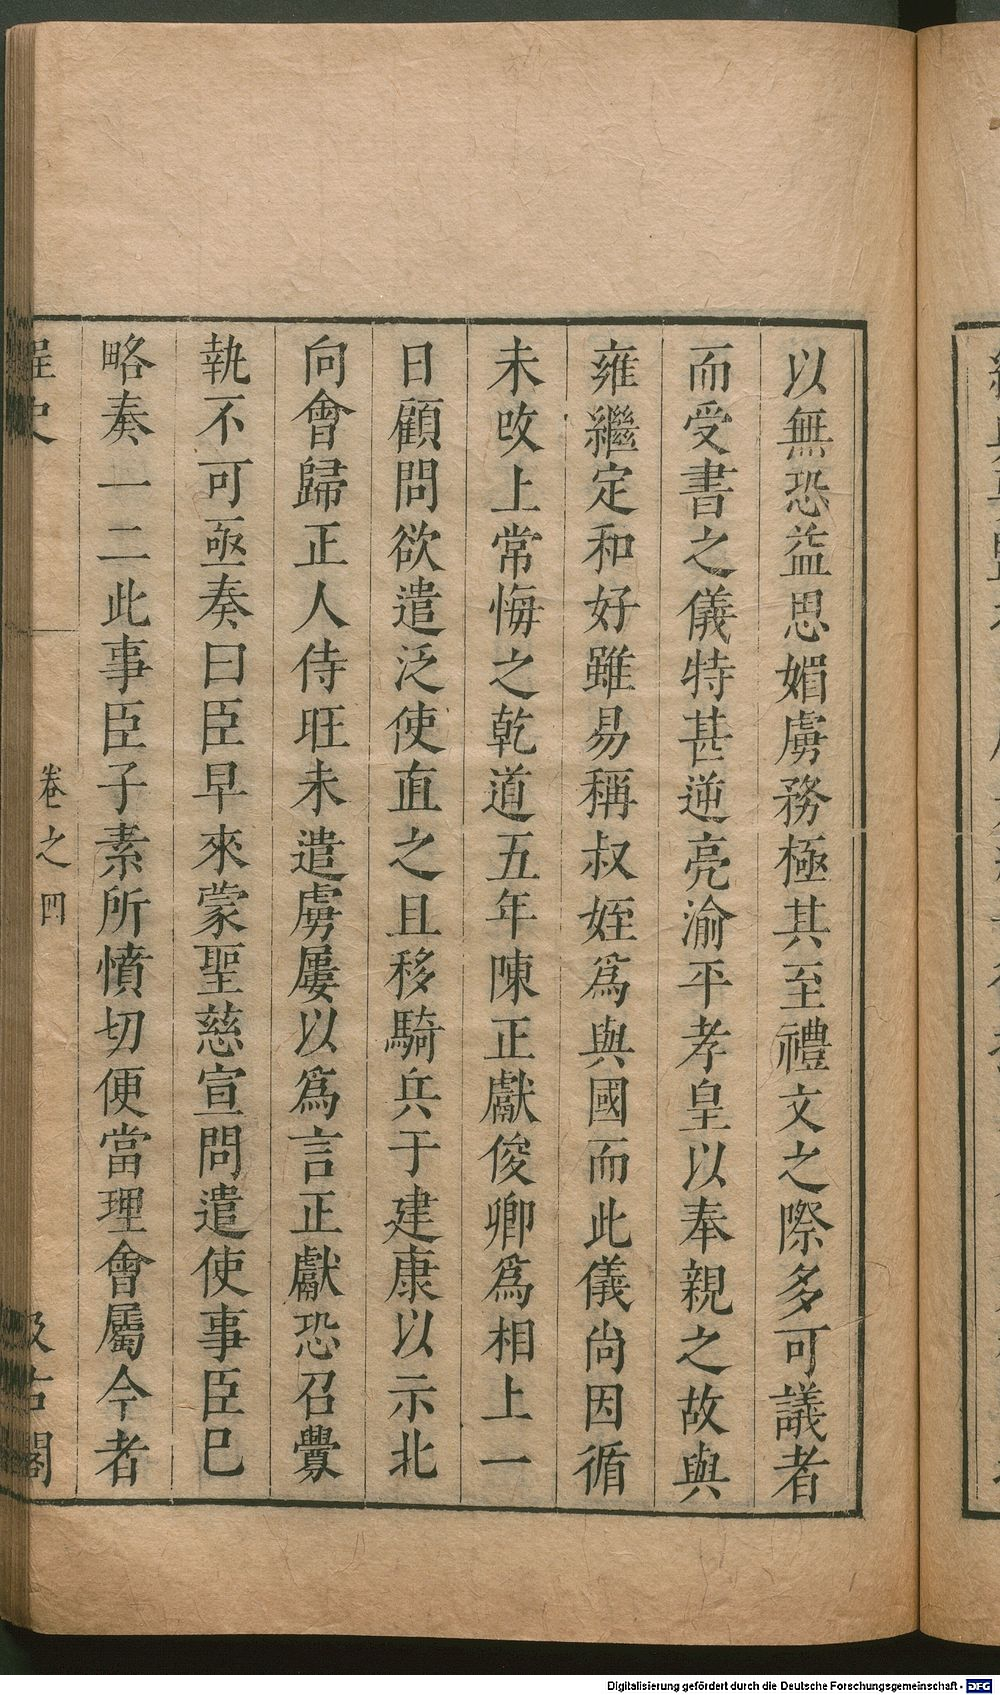 以無恐益思媚虜務極其至禮文之際多可議者
而受書之儀特甚逆亮渝平孝皇以奉親之故與
雍繼定和好雖易稱叔姪爲與國而此儀尙因循
未攺上常悔之乾道五年陳正獻俊卿爲相上一
日顧問欲遣泛使直之且移騎兵于建康以示北
向會歸正人侍旺未遣虜屢以爲言正獻恐召釁
執不可亟奏曰臣早來蒙聖慈宣問遣使事臣巳
略奏一二此事臣子素所憤切便當理會屬今者
桯史
卷之四
汲古閣
Digitalisierung gefördert durch die Deutsche Forschungsgemeinschaft - DFG